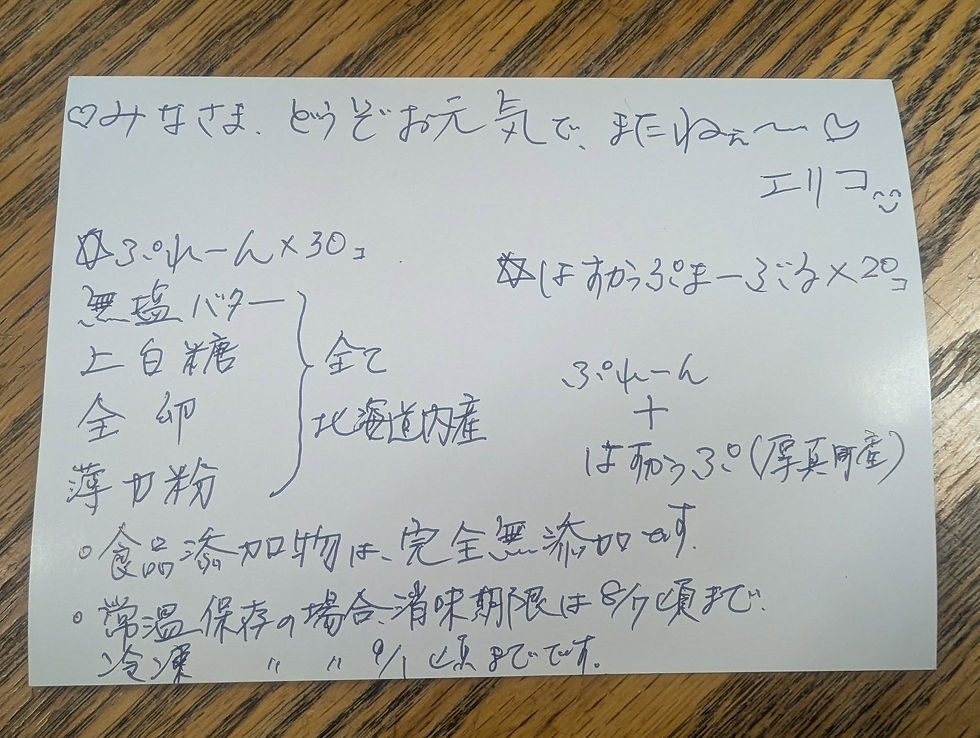 ♡みなさま、どうぞお元気で、またねぇ〜♡
エリコ
☆ぷれーん×30コ
無塩バター
上白糖
全卵
薄力粉
全て
北海道内産
☆はすかっぷまーぶる×20コ
ぷれーん
＋
はすかっぷ(厚真町産)
◦食品添加物は、完全無添加です。
◦常温保存の場合、消味期限は8/7頃まで、
冷凍 〃 〃 9/1頃までです。